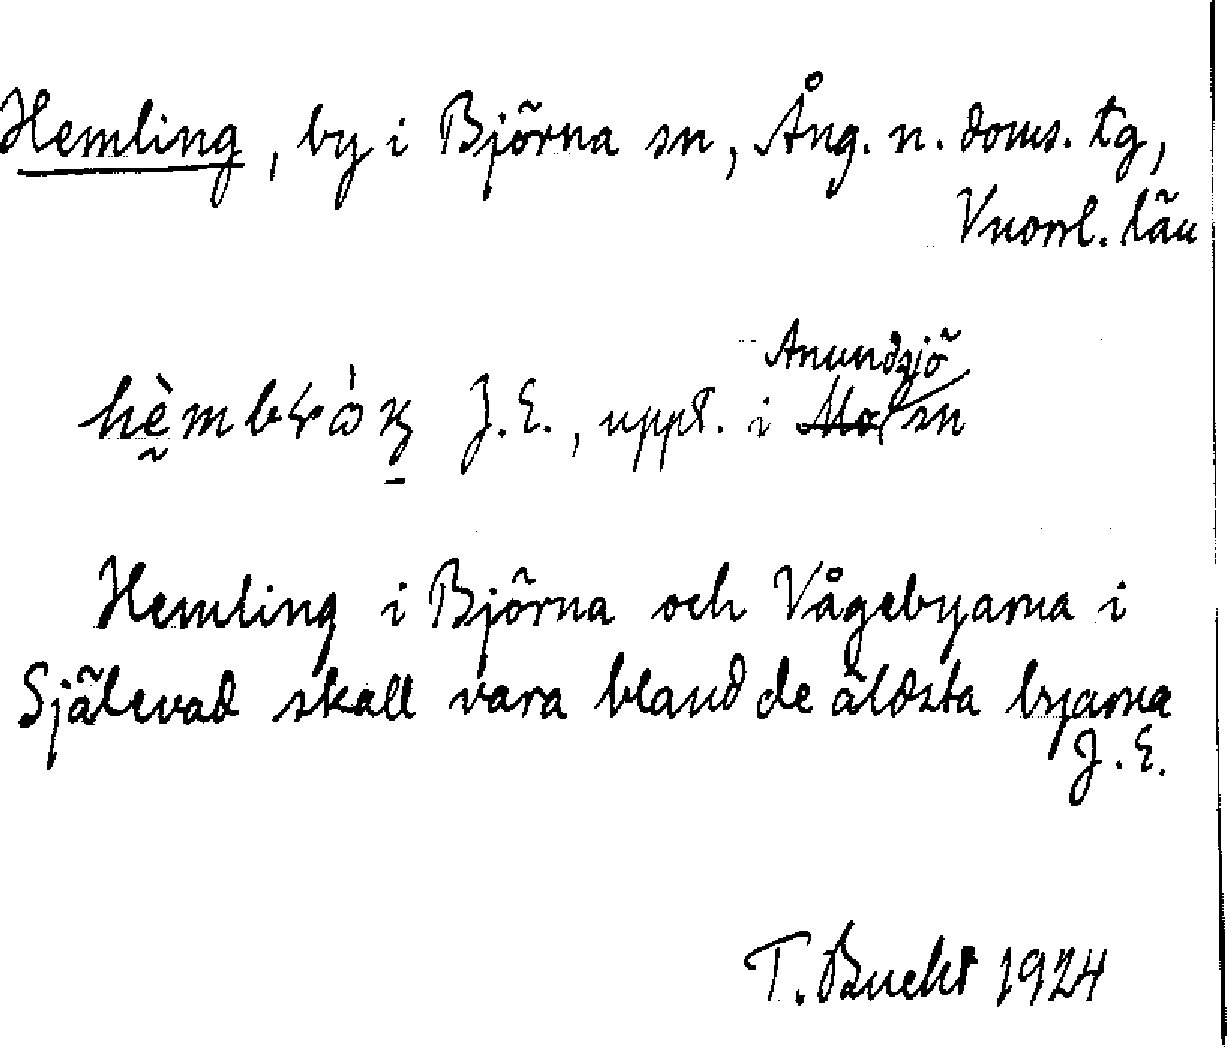 Hemling, by i Björna sn, Ång. n. doms. tg,
Vnorrl. län
Anundsjö
J.E., uppt. i Mo sn
Hemling i Björna och Vågebyarna i
Själevad skall vara bland de äldsta byarna
J.E.
T. Bucht 1924